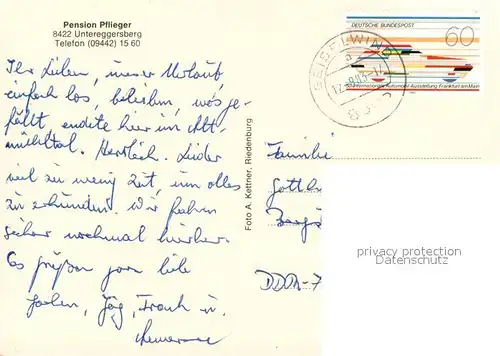 Pension Pflieger
8422 Untereggersberg
Telefon (09442) 15 60
Ihr Lieben, unser Urlaub
einfach los, bleiben, wo's ge-
fällt endete hier im Alt-
mühltal. Herrlich. Leider
viel zu wenig Zeit, um alles
zu erkunden. Wir fahren
sicher nochmal hierher.
Es grüßen ganz liebe
Jörg, Frank u.
Foto A. Kettner, Riedenburg
DEUTSCHE BUNDESPOST
60
Internationale Automobil-Ausstellung Frankfurt am Main
GEISELWIN
Familie
Gotth
DDR-7
privacy protection
Datenschutz